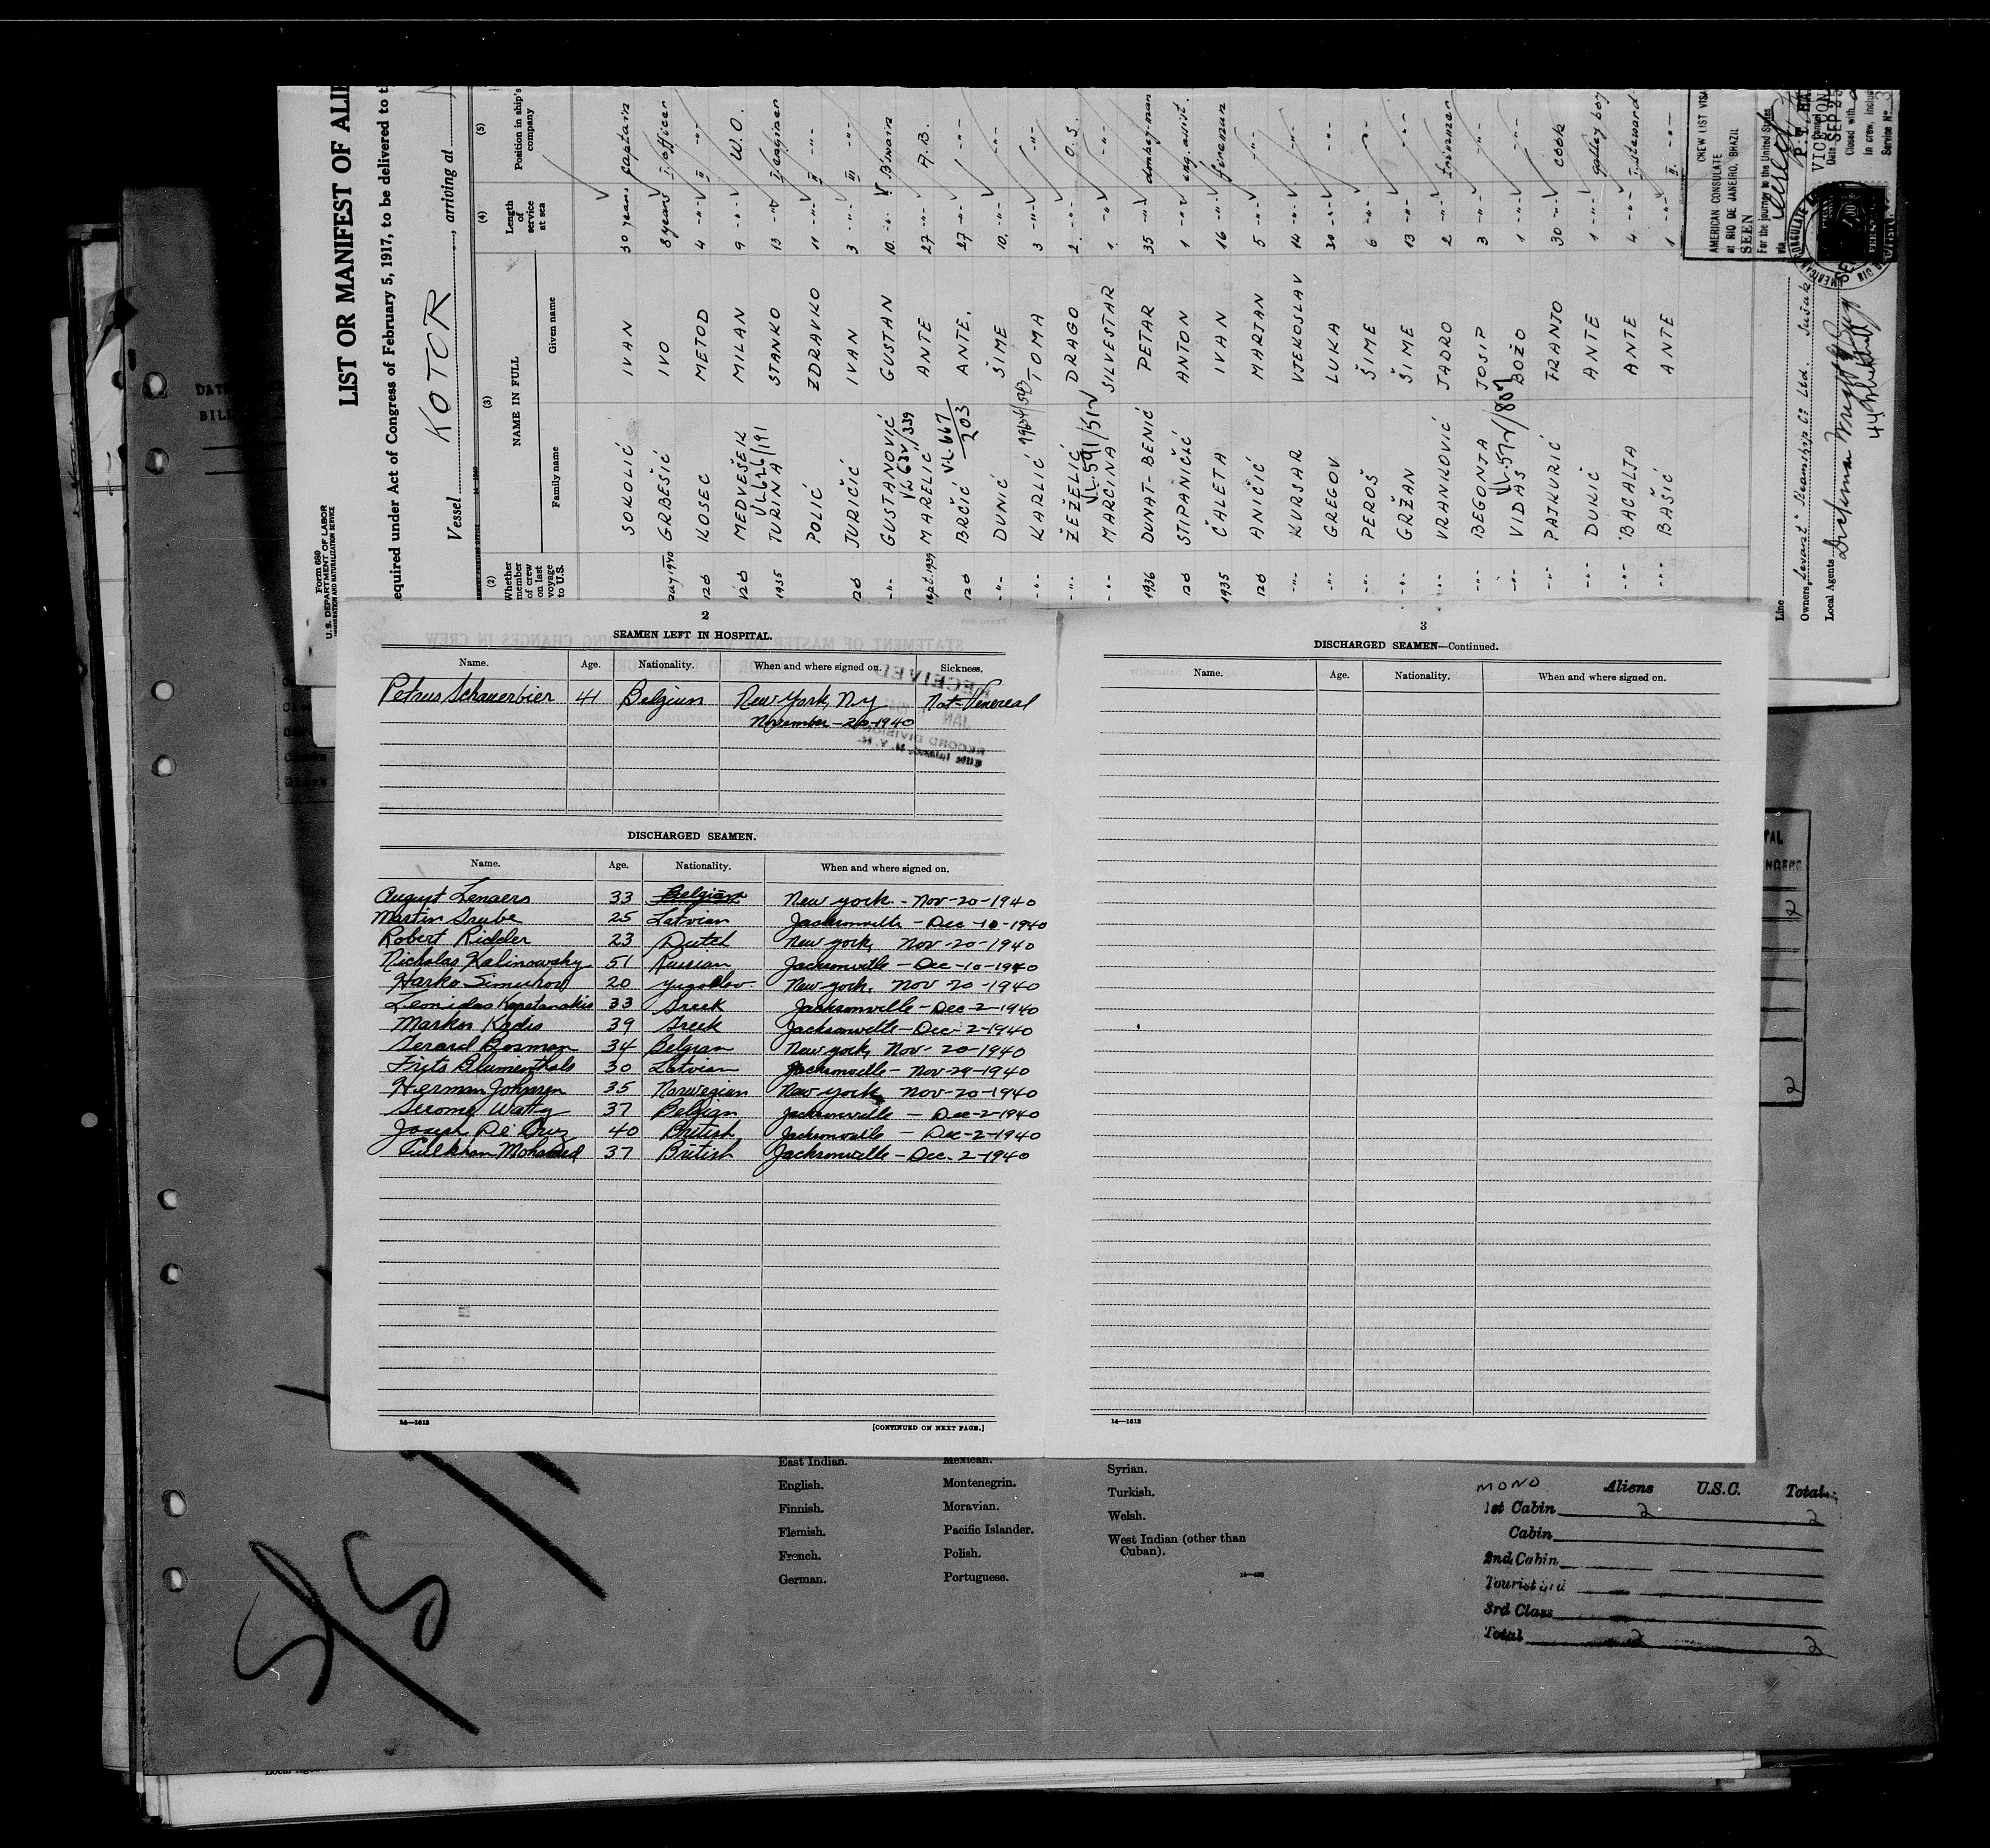 Form 680
U. S. DEPARTMENT OF LABOR
IMMIGRATION AND NATURALIZATION SERVICE
LIST OR MANIFEST OF ALIE
equired under Act of Congress of February 5, 1917, to be delivered to t
Vessel KOTOR, arriving at
(2) (3) (4) (5)
Whether member of crew on last voyage to U.S. NAME IN FULL Length of service at sea Position in ship's company
Family name Given name
SOKOLIĆ IVAN 30 years captain
GRBEŠIĆ IVO 8 years I officer
KOSEC METOD 4 -"- II -"-
MEDVEŠEK MILAN 9 -"- W. O.
1935 TURINA STANKO 13 -"- I engineer
POLIĆ ZDRAVKO 11 -"- II -"-
JURIČIĆ IVAN 3 -"- III -"-
-"- GUSTANOVIĆ GUSTAN 10 -"- B'swain
MARELIĆ ANTE 27 -"- A.B.
BRČIĆ ANTE. 27 -"- -"-
-"- DUNIĆ ŠIME 10 -"- -"-
-"- KARLIĆ TOMA 3 -"- -"-
-"- ŽEŽELIĆ DRAGO 2 -"- O.S.
-"- MARČINA SILVESTAR
1936 DUNAT-BENIĆ PETAR 35 -"- donkeyman
STIPANIČIĆ ANTON 1 -"- eng. assist.
1935 ČALETA IVAN 16 -"- fireman
ANIČIĆ MARJAN 5 -"- -"-
-"- KURSAR VJEKOSLAV 14 -"- -"-
-"- GREGOV LUKA 30 -"- -"-
-"- PEROŠ ŠIME 6 -"- -"-
-"- GRŽAN ŠIME 13 -"- -"-
-"- VRANKOVIĆ JADRO 2 -"- trimmer
-"- BEGONJA JOSIP 3 -"- -"-
-"- VIDAS BOŽO 1 -"- -"-
-"- PAJKURIĆ FRANJO 30 -"- cook
-"- DUKIĆ ANTE 1 -"- galley boy
-"- BACALJA ANTE 4 -"- I. steward
-"- BAŠIĆ ANTE 1 -"- II. -"-
Line
Owners, "Levant" Steamship Co Ltd. Sušak
Local Agents
CREW LIST VISA
AMERICAN CONSULATE
at RIO DE JANEIRO, BRAZIL
SEEN
For the journey to the United States
via
VICE CON
Date SEP
Closed with
in crew, inclu
Service No. 3
2
SEAMEN LEFT IN HOSPITAL.
Name. Age. Nationality. When and where signed on. Sickness.
Petrus Schauerbier 41 Belgium New York, N.Y. Not-Venereal
November-20-1940
RECEIVED
JAN
RECORD DIVISION
DISCHARGED SEAMEN.
Name. Age. Nationality. When and where signed on.
August Lenaers 33 Belgian New york - Nov-20-1940
Martin Grube 25 Latvian Jacksonville - Dec-10-1940
Robert Ridder 23 Dutch New york, Nov-20-1940
Nicholas Kalinowsky 51 Russian Jacksonville - Dec-10-1940
20 yugoslav. New york. Nov 20-1940
Leonidas Kapetanakis 33 Greek Jacksonville - Dec-2-1940
Markos Kadis 39 Greek Jacksonville - Dec-2-1940
Gerard Bosman 34 Belgian New york, Nov-20-1940
Frits Blumenthals 30 Latvian Jacksonville - Nov-29-1940
Herman Johnsen 35 Norwegian New york, Nov-20-1940
Jerome Watty 37 Belgian Jacksonville - Dec-2-1940
Joseph De Cruz 40 British Jacksonville - Dec-2-1940
Mohamed 37 British Jacksonville - Dec-2-1940
14—1613
[CONTINUED ON NEXT PAGE.]
3
DISCHARGED SEAMEN—Continued.
Name. Age. Nationality. When and where signed on.
14—1613
East Indian.
English.
Finnish.
Flemish.
French.
German.
Mexican.
Montenegrin.
Moravian.
Pacific Islander.
Polish.
Portuguese.
Syrian.
Turkish.
Welsh.
West Indian (other than
Cuban).
MONO Aliens U.S.C. Total
1st Cabin 2 2
Cabin
2nd Cabin
Tourist 3rd
3rd Class
Total 2 2
S/S